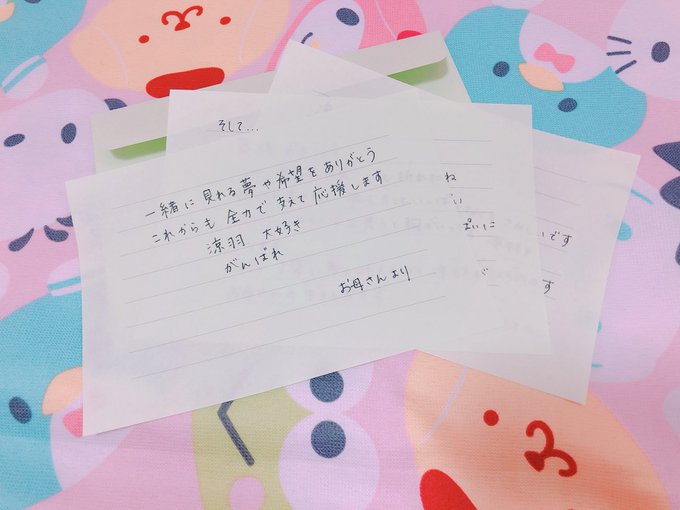 そして…
一緒に見れる夢や希望をありがとう
これからも全力で支えて応援します
涼羽 大好き
がんばれ
お母さんより
ね
い
ぱいに
で
いです
す